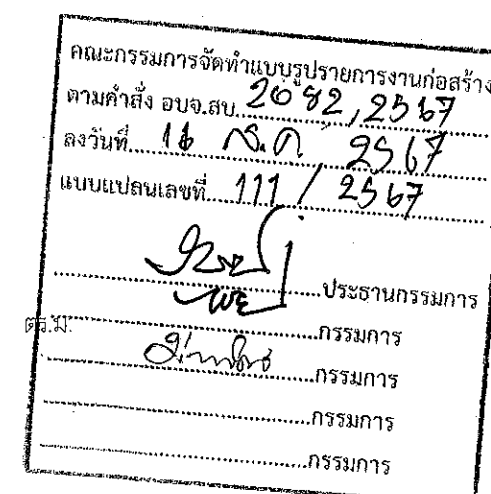 คณะกรรมการจัดทำแบบรูปรายการงานก่อสร้าง
ตามคำสั่ง อบจ.สบ. 2082, 2567
ลงวันที่ 16 ส.ค. 2567
แบบแปลนเลขที่ 111 / 2567
ประธานกรรมการ
ตร.ม. กรรมการ
กรรมการ
กรรมการ
กรรมการ